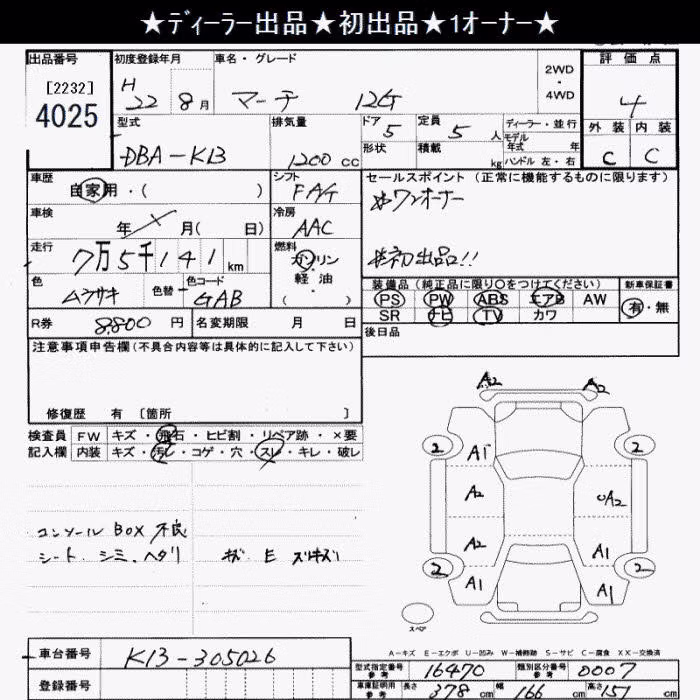 ★ディーラー出品★初出品★1オーナー★
出品番号 初度登録年月 車名・グレード 2WD・4WD 評価点
[2232] H
4025 22 8月 マーチ 12G 4
型式 排気量 ドア 5 定員 5 人 ディーラー・並行 外装 内装
モデル年式 年
DBA-K13 1200 CC 形状 積載 kg ハンドル 左・右 C C
車歴 シフト セールスポイント (正常に機能するものに限ります)
自家用・( ) FA/G
※ワンオーナー
車検 冷房
年 月( 日) AAC
走行 燃料
7万5千141 km ガソリン ※初出品!!
軽油
色 色替 色コード ( )
ムラサキ GAB
装備品 (純正品に限り○をつけてください) 新車保証書
PS PW ABS エアB AW 有・無
SR ナビ TV カワ
R券 8,800 円 名変期限 月 日
後日品
注意事項申告欄(不具合内容等は具体的に記入して下さい)
修復歴 有 [箇所 ]
検査員 FW キズ・飛石・ヒビ割・リペア跡・×要
記入欄 内装 キズ・汚レ・コゲ・穴・スレ・キレ・破レ
コンソールBOX不良
シート・シミ・ヘタリ キズ E スリキズ
A2 A2
2 A1 2
A2 A2
A2 A1
2 A1 A1 2
スペア
A-キズ E-エクボ U-凹み W-補修跡 S-サビ C-腐食 XX-交換済
車台番号 K13-305026
登録番号
型式指定番号 参考 16470 類別区分番号 参考 0007
車庫証明用 参考 長さ 378 cm 幅 166 cm 高さ 151 cm